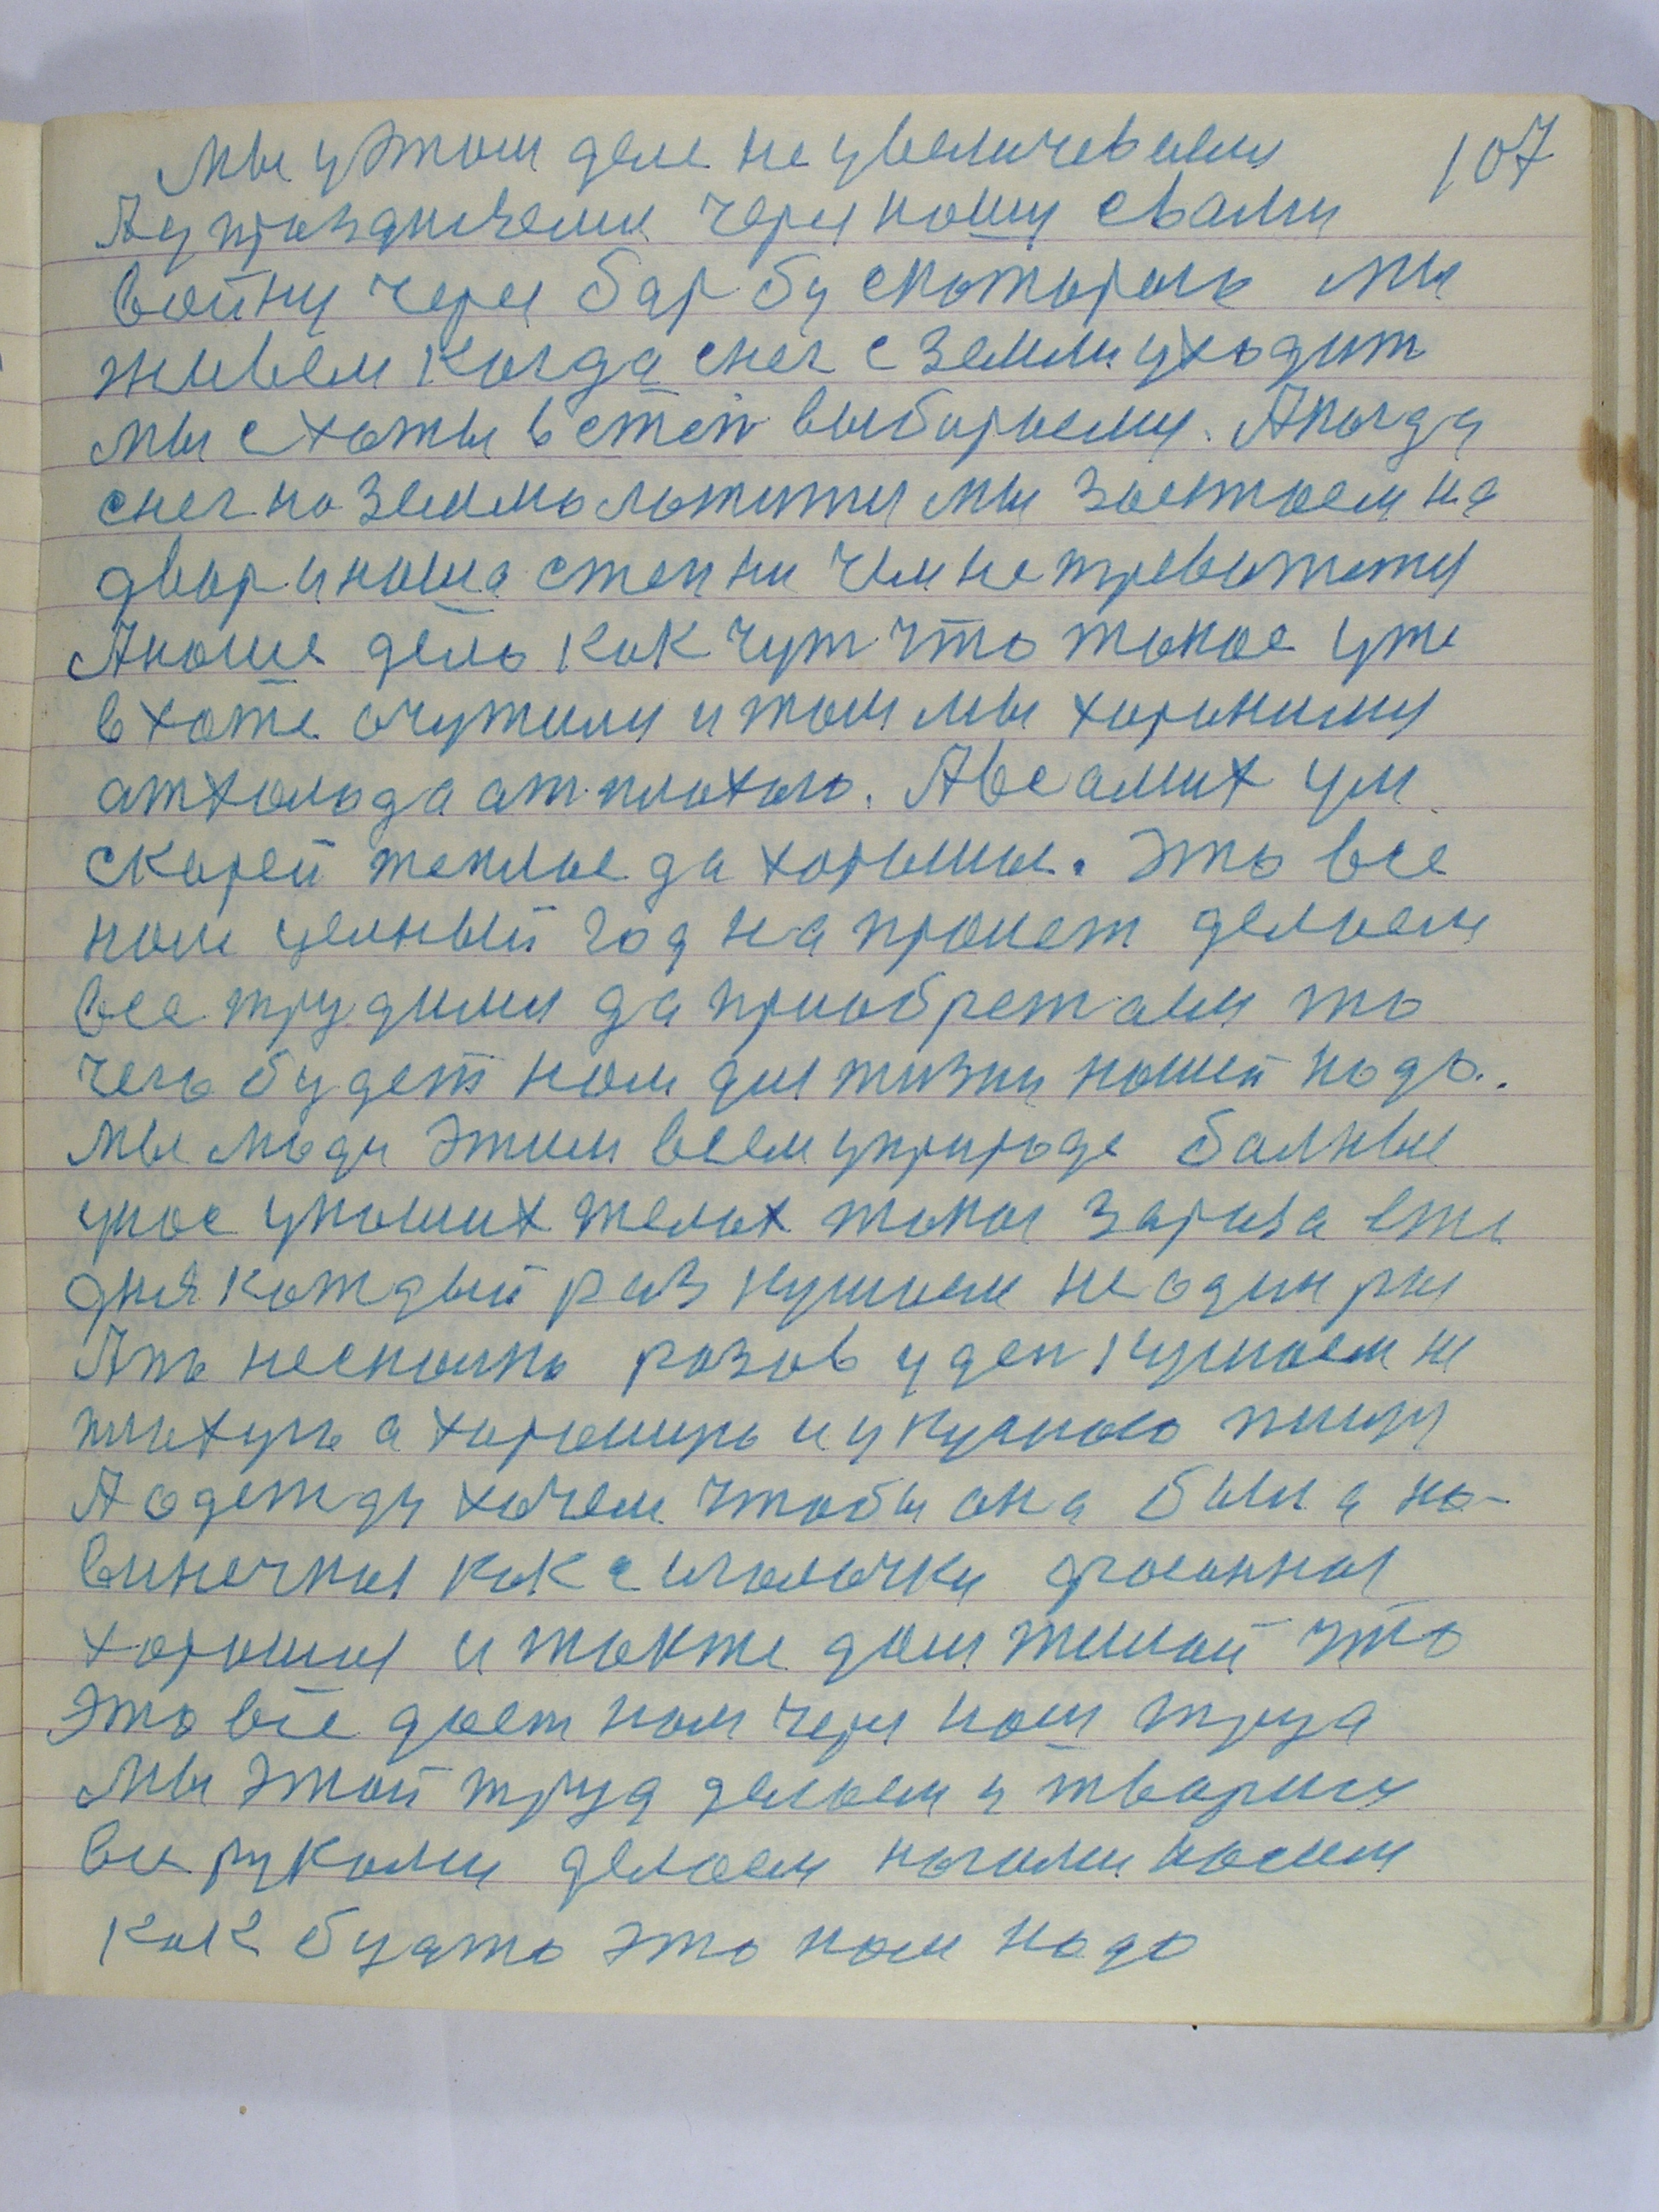 107
Мы у этом деле не увеличеваем
А у праздничем через нашу свами
войну через барбу скоторою мы
живем когда снег с земли уходит
мы с хаты в степ выбираемся. А когда
снег на землю ложится мы застаем на
двор и наша степ ни чем не тревожится
А наше дело как чут что такое уже
в хате очутился и там мы хоронимся
ат холода ат плохого. А в самих ум
скорей теплое да хорошее. Это все
нам целный год на пролет делаем
все трудимся да приобретаем то
чего будет нам для жизни нашей надо.
Мы люди этим всем у природе балные
у нас у наших телах такая зараза еже
дня каждый раз кушаем не один раз
А по несколко разов у ден кушаем не
плохую а хорошую и укусною пищу
А одежду хочем чтобы она была но-
виночкая как с иголочки фасонная
хорошая и также дом жилой что
это все дает нам через наш труд
Мы этой труд делаем и творим
все руками делаем ногами носим
как будто это нам надо